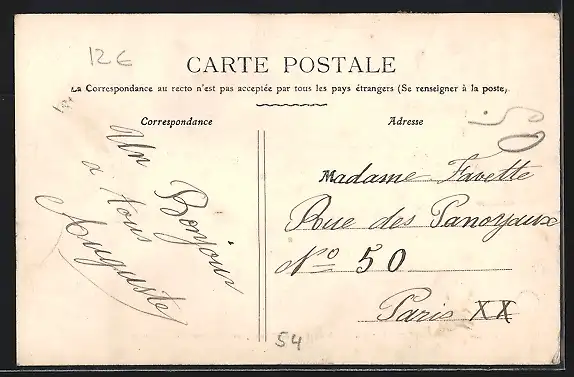 12€
CARTE POSTALE
La Correspondance au recto n'est pas acceptée par tous les pays étrangers (Se renseigner à la poste)
Correspondance
Adresse
Un Bonjour
à tous
Auguste
Madame Favette
Rue des Panoyaux
No 50
Paris XX
54